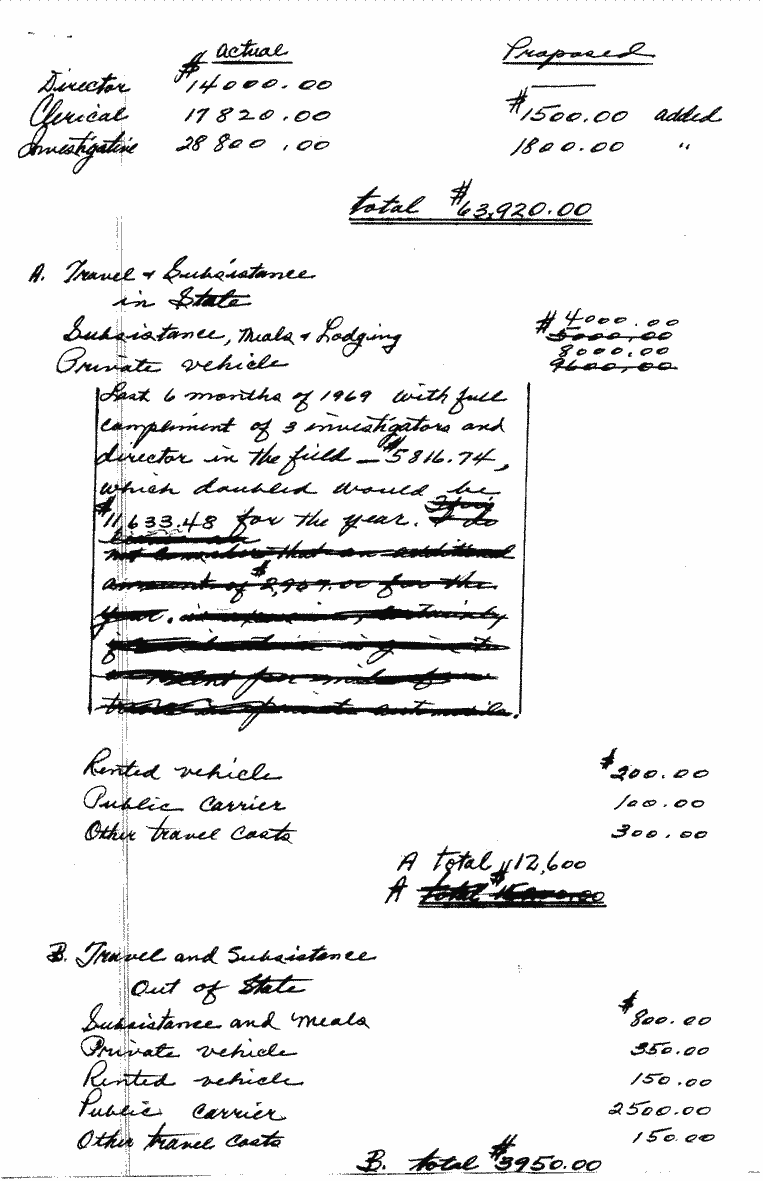 Actual Proposed
Director $14000.00 ——
Clerical 17820.00 $1500.00 added
Investigative 28800.00 1800.00 "
total $63,920.00
A. Travel & Subsistance
in State
$4000.00
Subsistance, Meals & Lodging 5000.00
8000.00
Private vehicle 9600.00
Last 6 months of 1969 with full
compliment of 3 investigators and
director in the field — $5816.74,
which doubled would be
$11,633.48 for the year. I do
not that an additional
amount of $2,967.00 for the
year.
private automobile.
Rented vehicle $200.00
Public Carrier 100.00
Other travel costs 300.00
A total $12,600
A total
B. Travel and Subsistance
Out of State
Subsistance and Meals $800.00
Private vehicle 350.00
Rented vehicle 150.00
Public carrier 2500.00
Other travel costs 150.00
B. total $3950.00